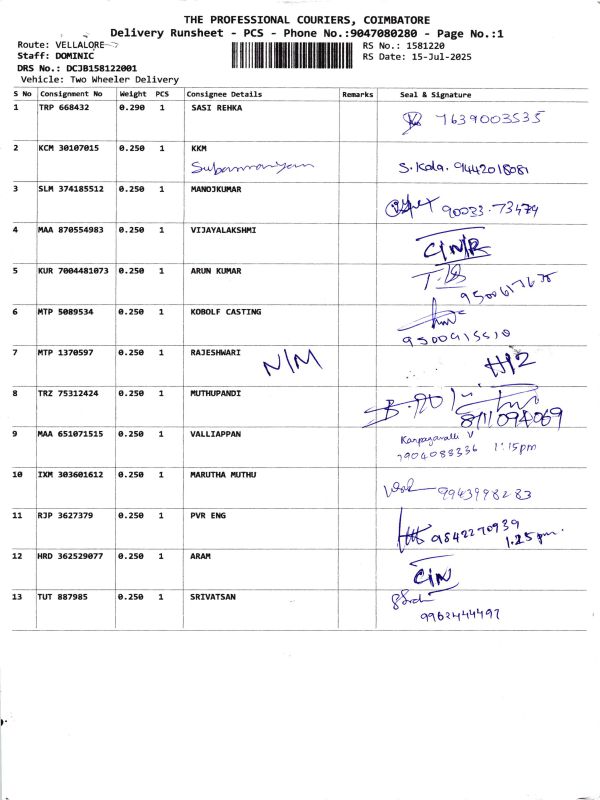 THE PROFESSIONAL COURIERS, COIMBATORE
Delivery Runsheet - PCS - Phone No.:9047080280 - Page No.:1
Route: VELLALORE
RS No.: 1581220
Staff: DOMINIC
RS Date: 15-Jul-2025
DRS No.: DCJB158122001
Vehicle: Two Wheeler Delivery
S No Consignment No Weight PCS Consignee Details Remarks Seal & Signature
1 TRP 668432 0.290 1 SASI REHKA 7639003535
2 KCM 30107015 0.250 1 KKM
Subramaniyam S. Kala. 9442018081
3 SLM 374185512 0.250 1 MANOJKUMAR
90033.73479
4 MAA 870554983 0.250 1 VIJAYALAKSHMI
C/N/R
5 KUR 7004481073 0.250 1 ARUN KUMAR
6 MTP 5089534 0.250 1 KOBOLF CASTING
7 MTP 1370597 0.250 1 RAJESHWARI
N/M
8 TRZ 75312424 0.250 1 MUTHUPANDI
9 MAA 651071515 0.250 1 VALLIAPPAN
Karpagavalli V
7904088336 1:15pm
10 IXM 303601612 0.250 1 MARUTHA MUTHU
9943998283
11 RJP 3627379 0.250 1 PVR ENG
9842270939
1.25 pm.
12 HRD 362529077 0.250 1 ARAM
C/N
13 TUT 887985 0.250 1 SRIVATSAN
9962444497